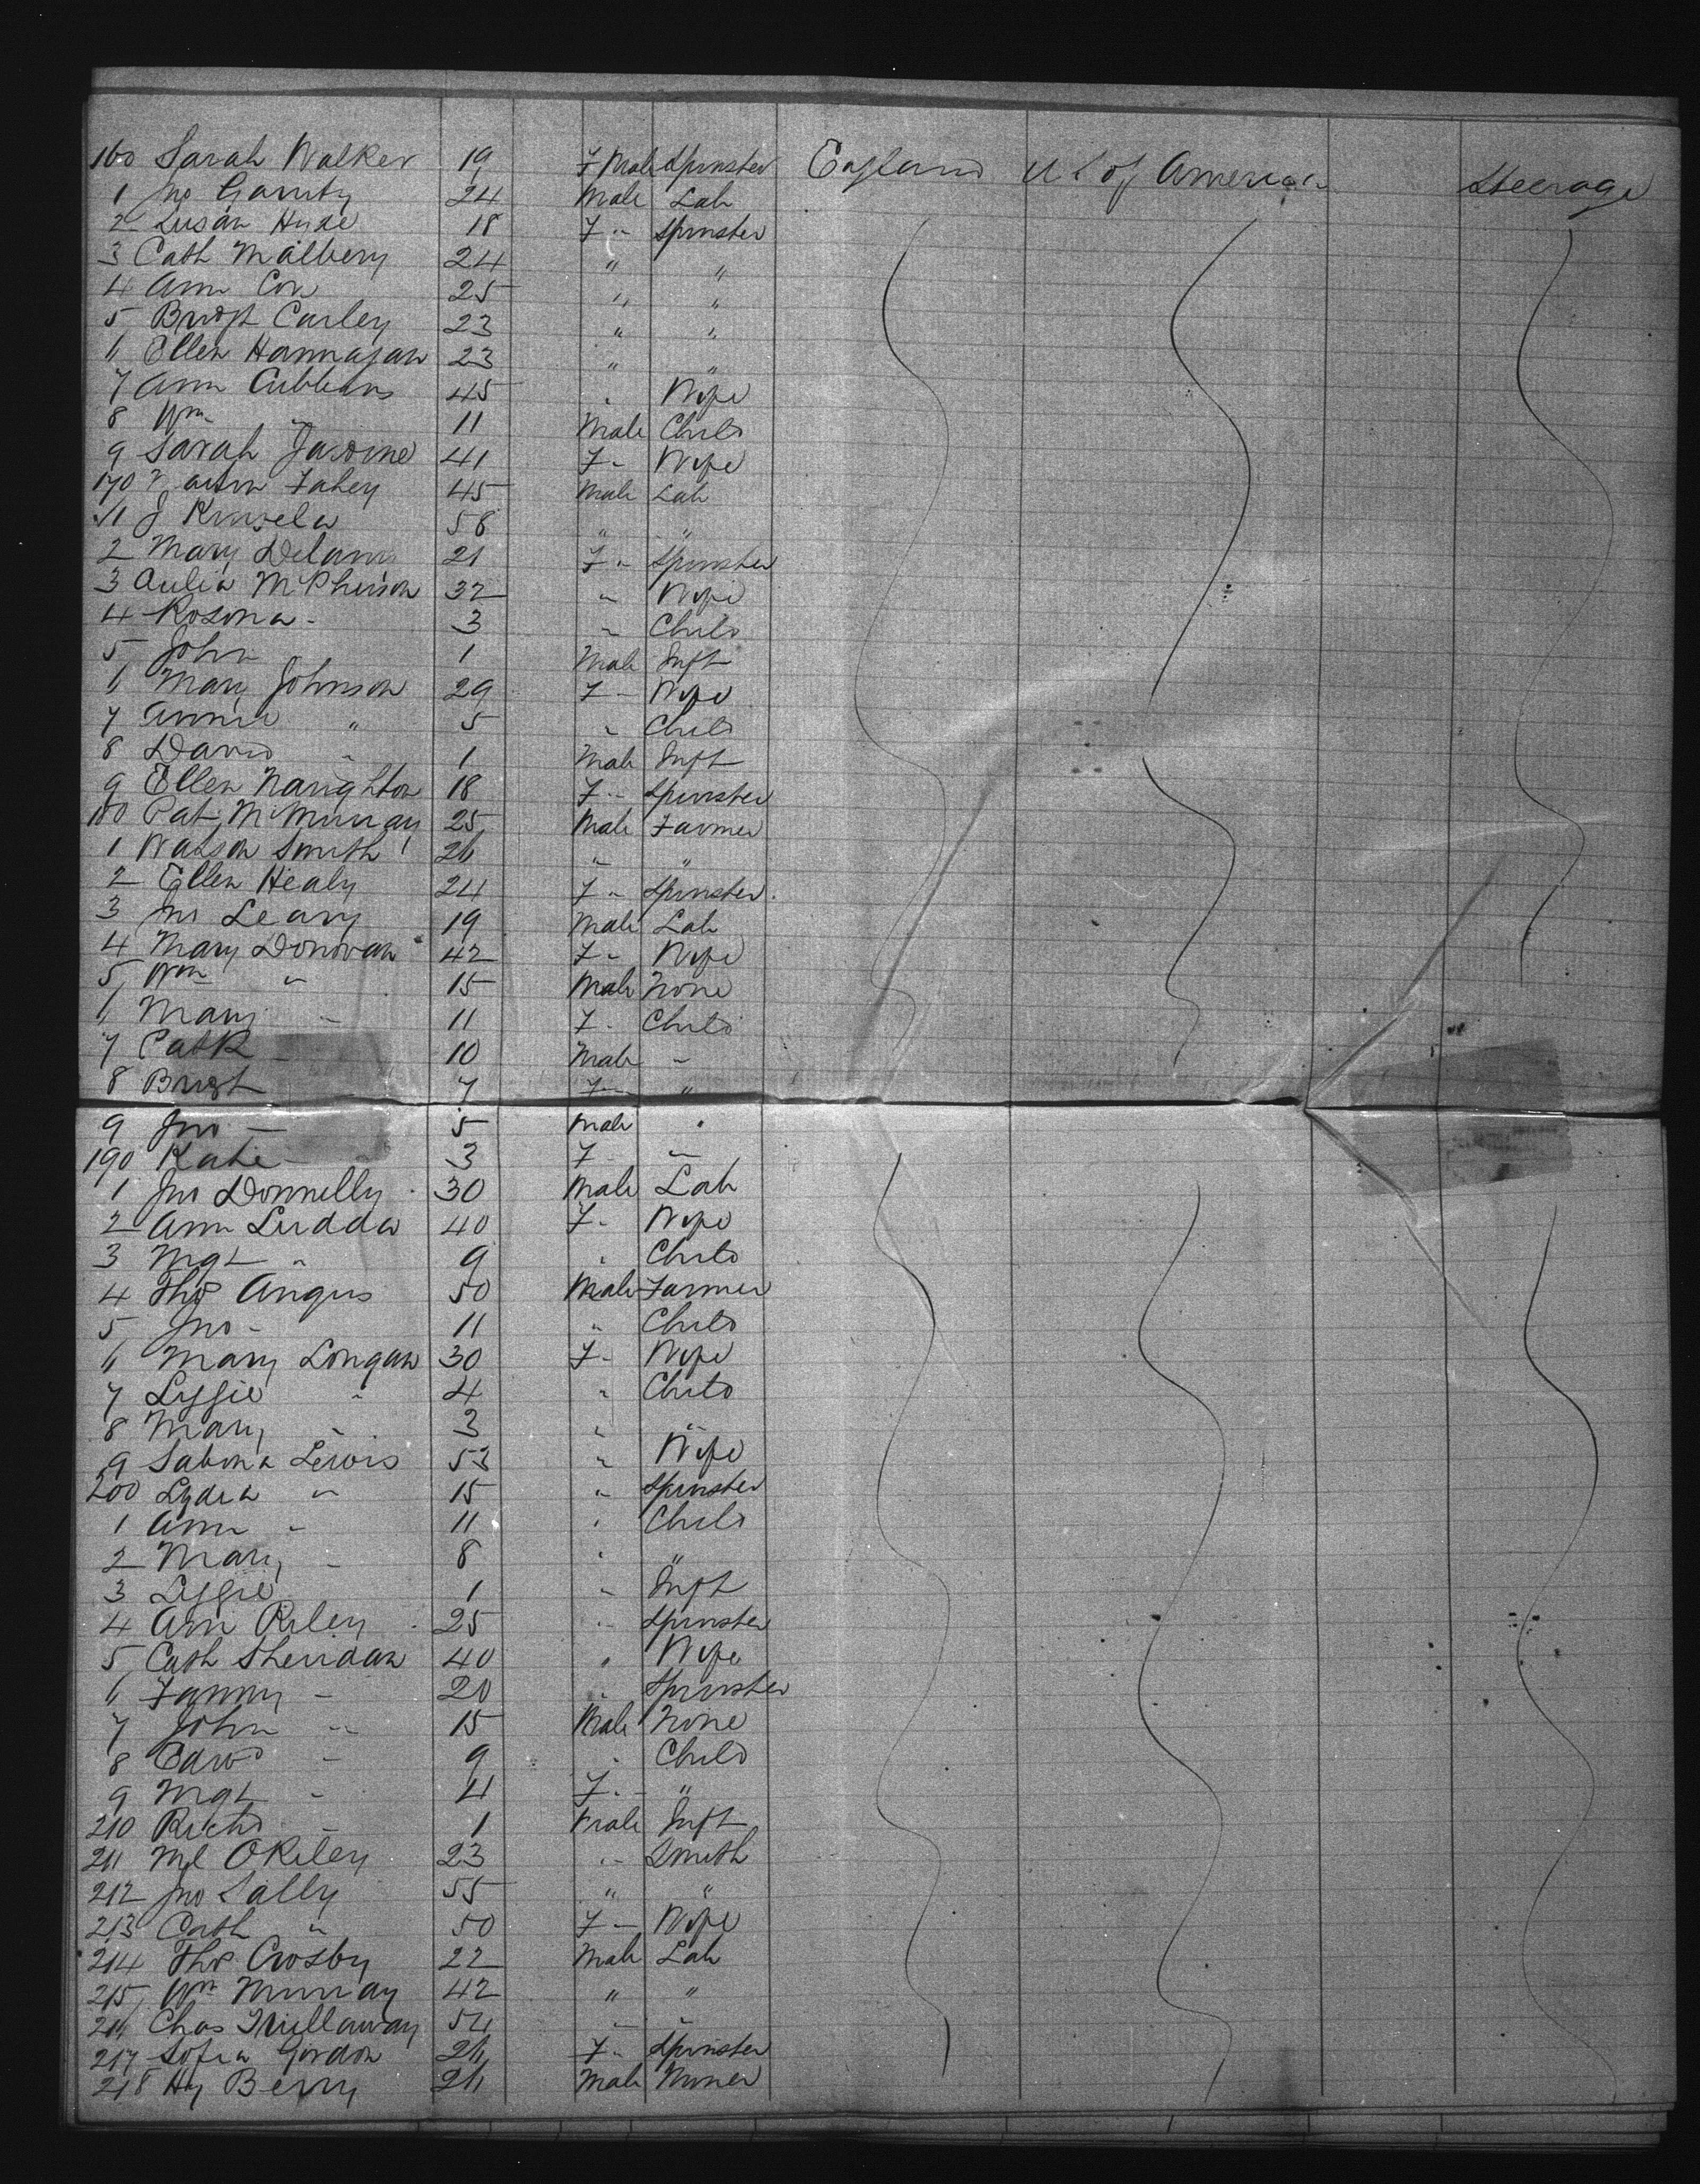 160 Sarah Walker 19 F Male Spinster England U S of America Steerage
1 Jno Garrity 24 Male Lab
2 Susan Hyde 18 F " Spinster
3 Cath Malbery 24 " "
4 Ann Cox 25 " "
5 Bridgt Curley 23 " "
6 Ellen Hannagan 23 " "
7 Ann Cubbens 45 " Wife
8 Wm " 11 Male Child
9 Sarah 41 F " Wife
170 Fahey 45 Male Lab
1 J Kinsela 58 " "
2 Mary Delany 21 F " Spinster
3 McPherson 32 " Wife
4 Rosona - 3 " Child
5 John 1 Male Inft
6 Mary Johnson 29 F - Wife
7 Annie " 5 " Child
8 David " 1 Male Inft
9 Ellen Naughton 18 F " Spinster
180 Pat McMurray 25 Male Farmer
1 Watson Smith 26 " "
2 Ellen Healy 24 F " Spinster
3 Jno Leary 19 Male Lab
4 Mary Donovan 42 F " Wife
5 Wm " 15 Male None
6 Mary " 11 F " Child
7 Patk - 10 Male "
8 Bridgt 7 F - "
9 Jno - 5 Male "
190 Katie - 3 F - "
1 Jno Donnelly 30 Male Lab
2 Ann Ludda 40 F - Wife
3 Mgt " 9 " Child
4 Thos Angus 50 Male Farmer
5 Jno - 11 " Child
6 Mary Longan 30 F - Wife
7 Lizzie " 4 " Child
8 Mary " 3 " "
9 Sabina Lewis 53 " Wife
200 Lydia " 15 " Spinster
1 Ann " 11 " Child
2 Mary - 8 " "
3 Lizzie 1 " Inft
4 Ann Riley 25 " Spinster
5 Cath Sheridan 40 " Wife
6 Fanny - 20 " Spinster
7 John " 15 Male None
8 Edwd - 9 " Child
9 Mgt - 4 F " "
210 Richd - 1 Male Inft
211 Ml O Riley 23 " Smith
212 Jno Lally 55 " "
213 Cath " 50 F - Wife
214 Thos Crosby 22 Male Lab
215 Wm Murray 42 " "
216 Chas 54 " "
217 Sofia Gordon 26 F " Spinster
218 Hy Berry 26 Male Miner